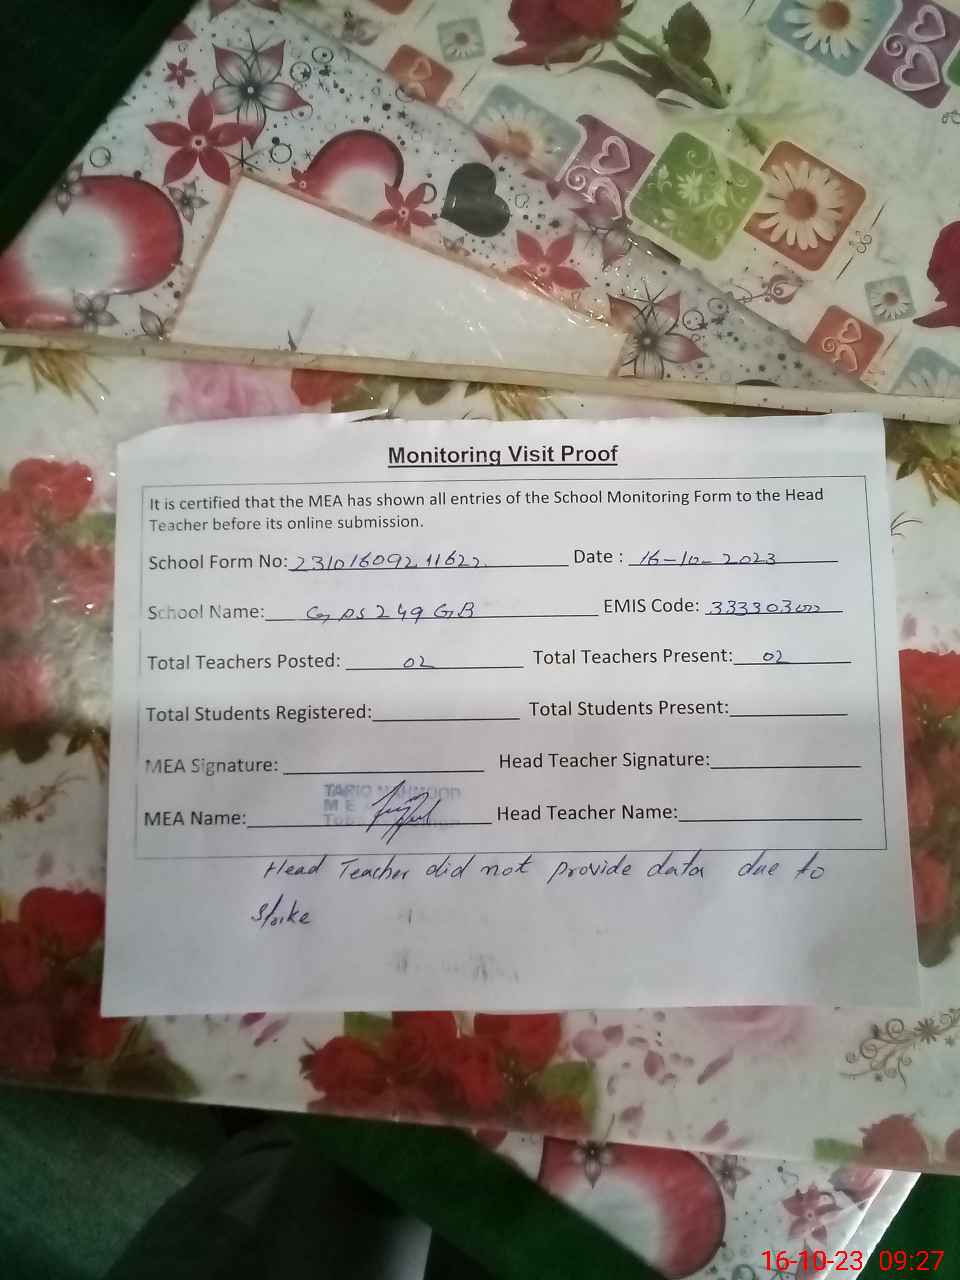 Monitoring Visit Proof
It is certified that the MEA has shown all entries of the School Monitoring Form to the Head
Teacher before its online submission.
School Form No: 23101609211622 Date : 16-10-2023
School Name: GPS 249 GB EMIS Code: 33330300
Total Teachers Posted: 02 Total Teachers Present: 02
Total Students Registered: Total Students Present:
MEA Signature: Head Teacher Signature:
TARIQ MAHMOOD
M E A
MEA Name: Head Teacher Name:
Head Teacher did not provide data due to
strike
16-10-23 09:27